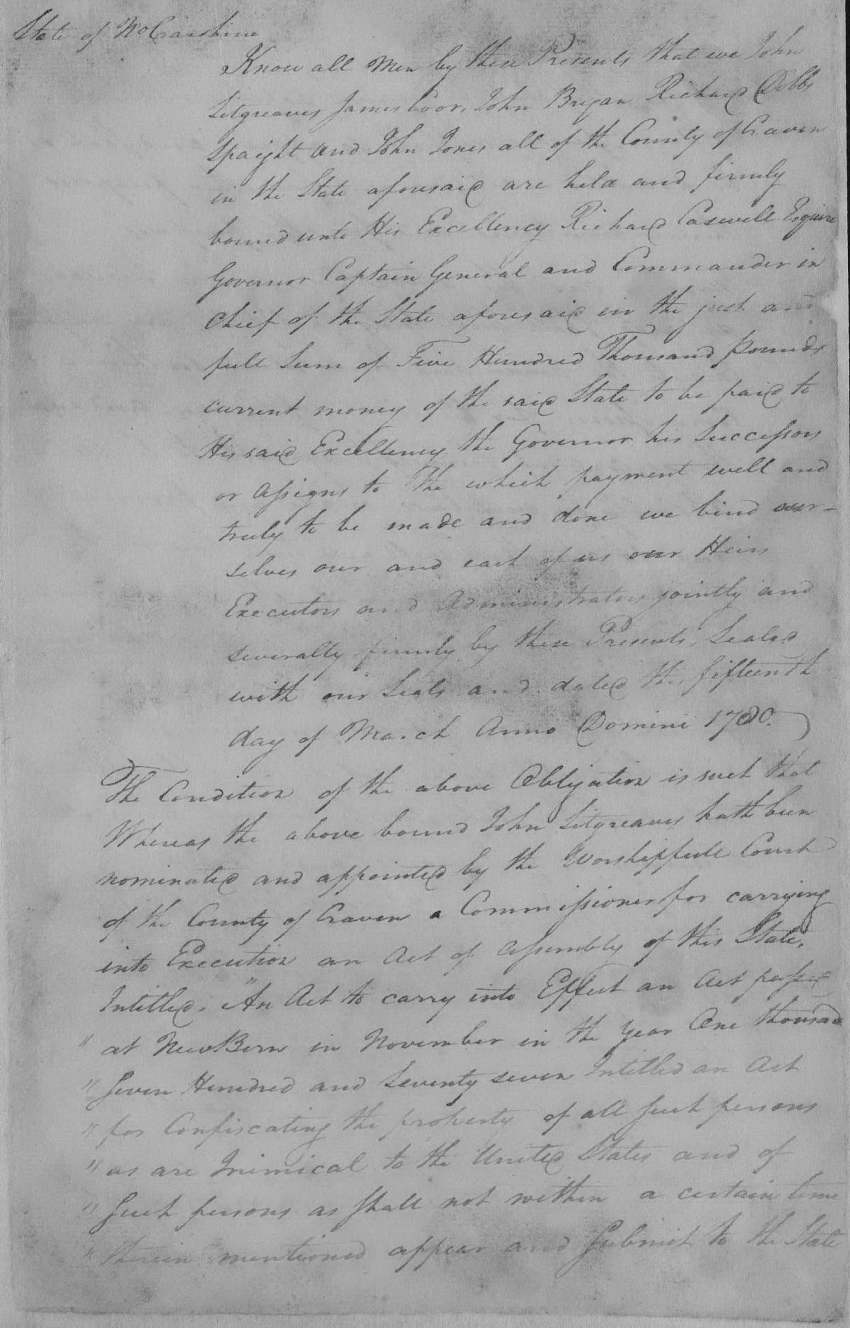 State of No Carolina
Know all Men by these Presents that we John
Sitgreaves James Coor, John Bryan Richard Dobbs
Spaight and John Jones all of the County of Craven
in the State aforesaid are held and firmly
bound unto His Excellency Richard Caswell Esquire
Governor Captain General and Commander in
Chief of the State aforesaid in the just and
full Sum of Five Hundred Thousand pounds
current money of the said State to be paid to
His said Excellency the Governor his Successors
or Assigns to The which payment well and
truly to be made and done we bind our-
selves our and each of us our Heirs
Executors and Administrators jointly and
severally firmly by these Presents, Sealed
with our Seals and dated the fifteenth
day of March Anno Domini 1780.
The Condition of the above Obligation is such that
Whereas the above bound John Sitgreaves hath been
nominated and appointed by the Worshipfull Court
of the County of Craven a Commissioner for carrying
into Execution an Act of Assembly of this State,
Intitled, "An Act to carry into Effect an Act passed
" at New Bern in November in the year One thousand
" Seven Hundred and Seventy seven Intitled an Act
" for Confiscating the property of all such persons
" as are Inimical to the United States and of
" Such persons as shall not within a certain time
" therein mentioned appear and Submit to the State